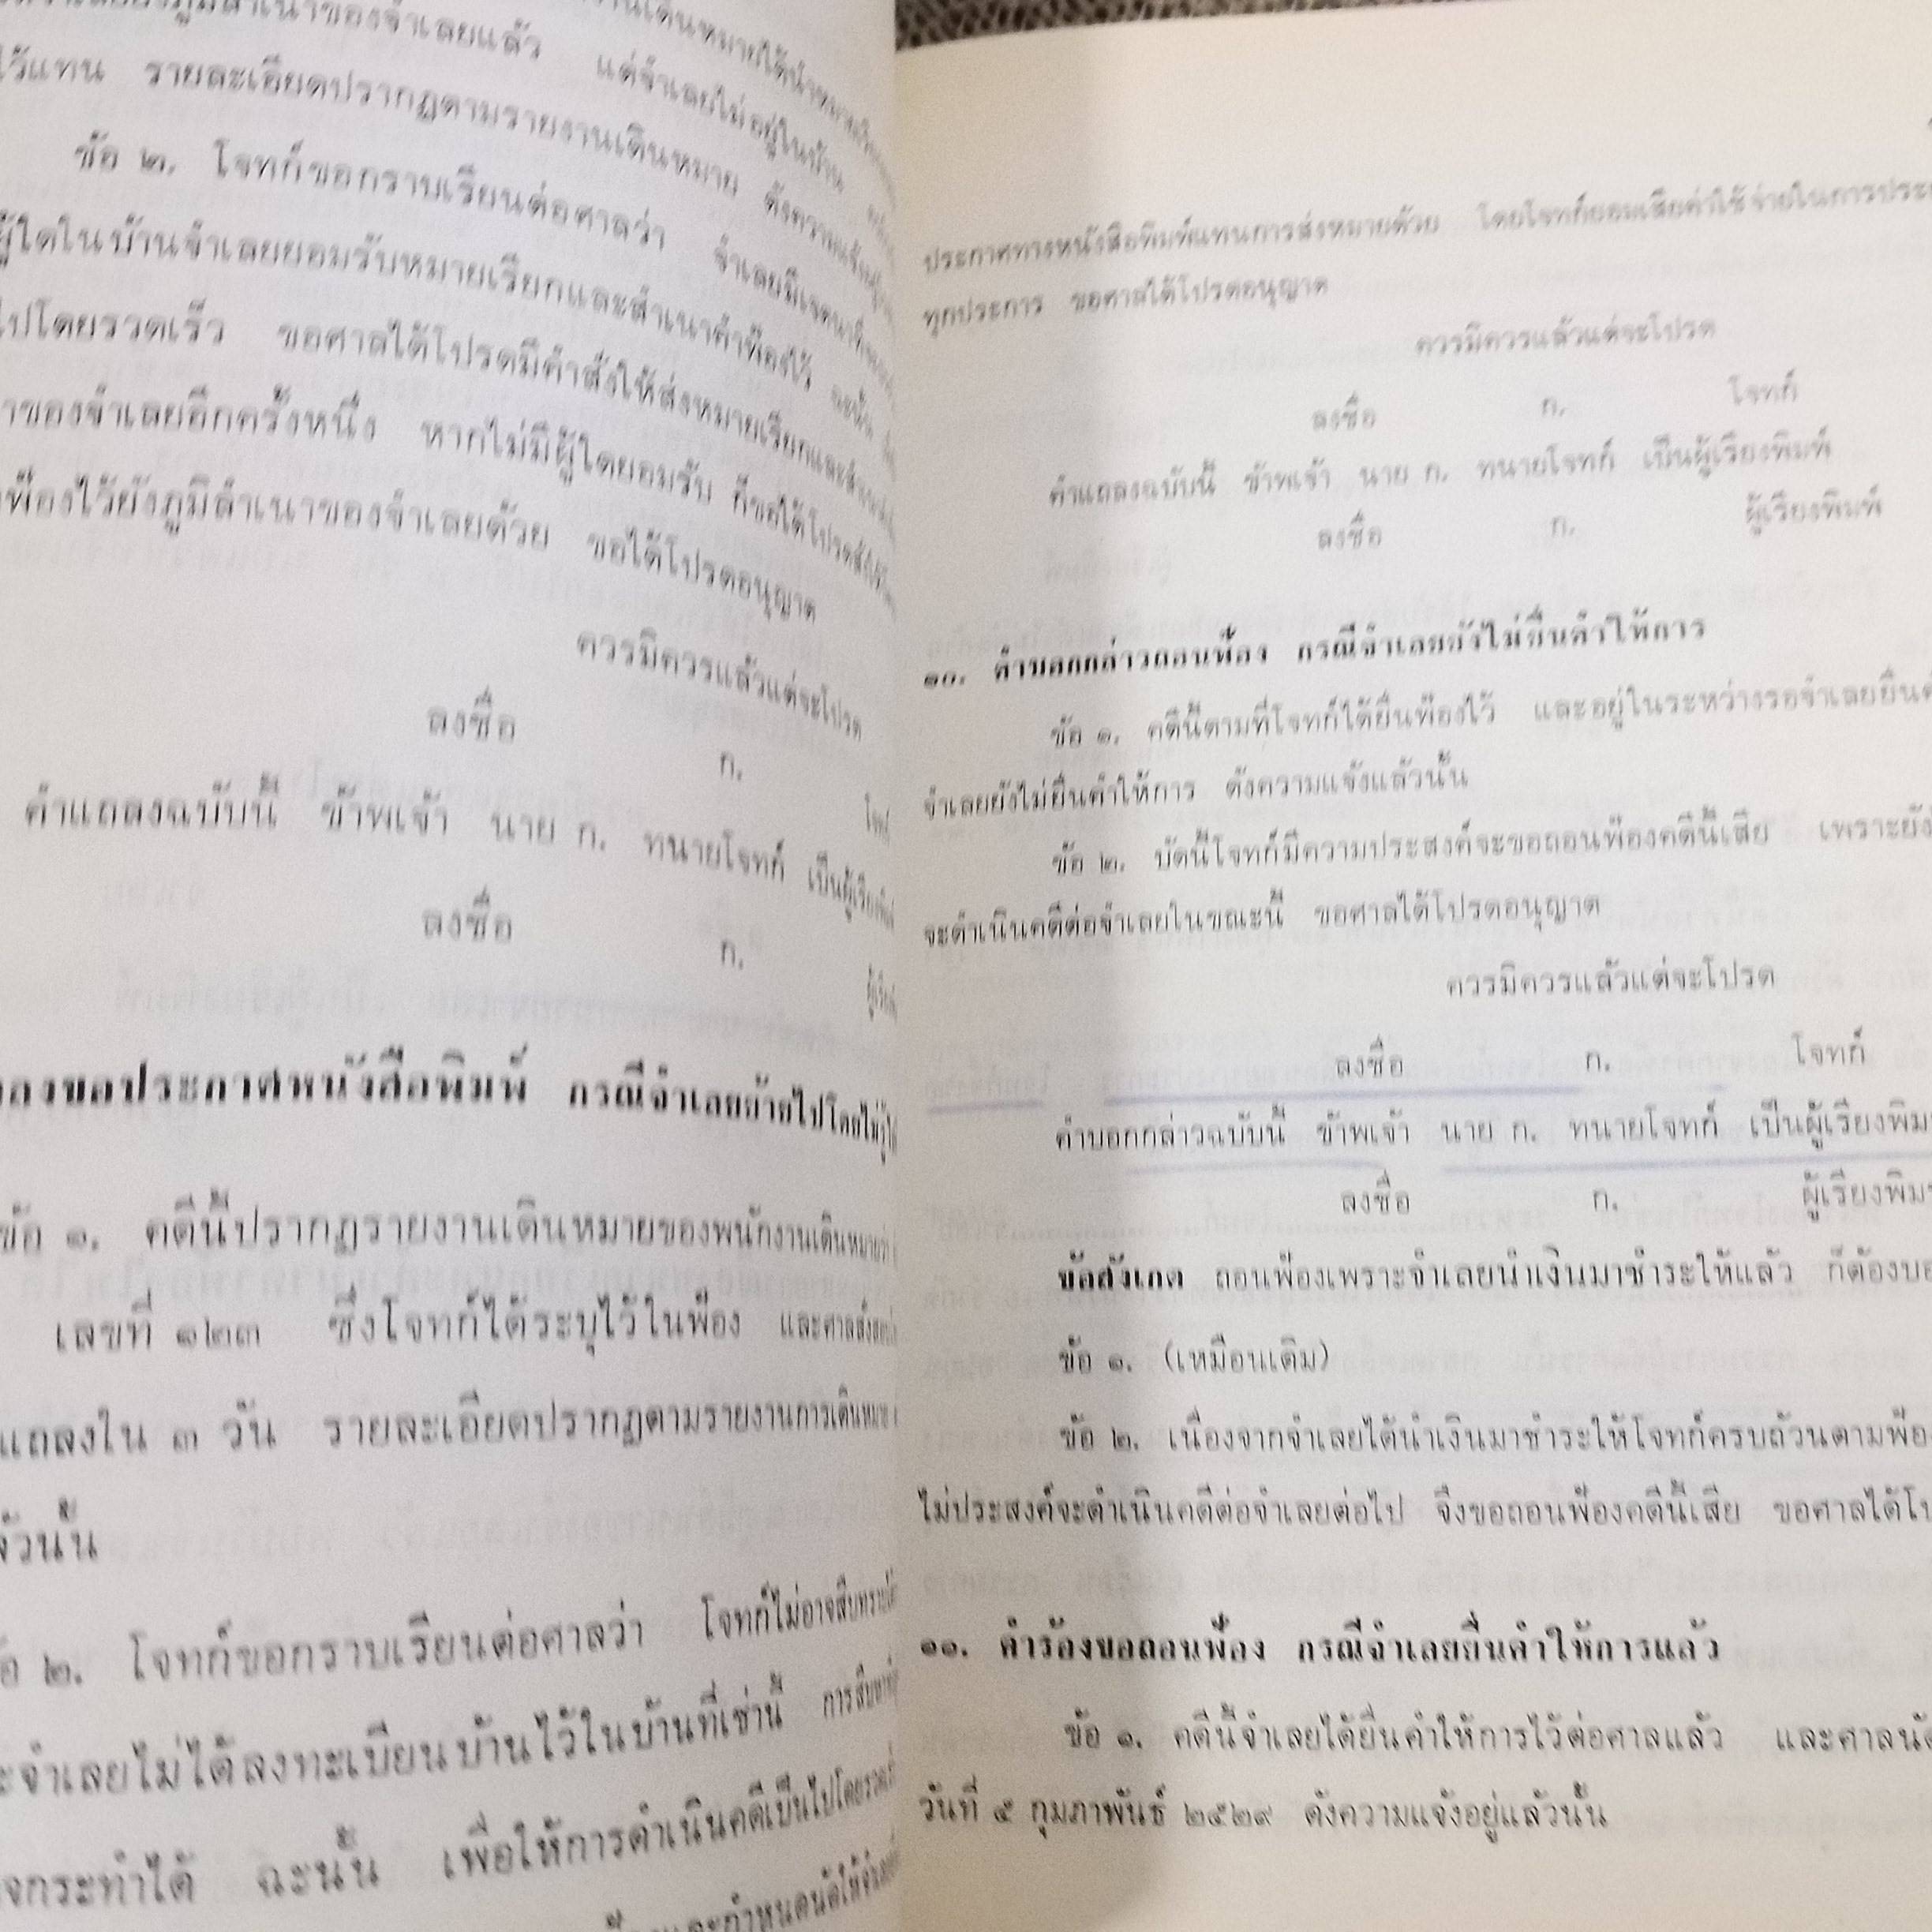 ภูมิลำเนาของจำเลยแล้ว แต่จำเลยไม่อยู่ในบ้าน
ไว้แทน รายละเอียดปรากฏตามรายงานเดินหมาย
ข้อ ๒. โจทก์ขอกราบเรียนต่อศาลว่า จำเลยมีเจตนา
ผู้ใดในบ้านจำเลยยอมรับหมายเรียกและสำเนาคำฟ้องไว้ ฉะนั้น
ไปโดยรวดเร็ว ขอศาลได้โปรดมีคำสั่งให้ส่งหมายเรียกและ
ของจำเลยอีกครั้งหนึ่ง หากไม่มีผู้ใดยอมรับ ก็ขอได้โปรด
ฟ้องไว้ยังภูมิลำเนาของจำเลยด้วย ขอได้โปรดอนุญาต
ควรมิควรแล้วแต่จะโปรด
ลงชื่อ ก.
คำแถลงฉบับนี้ ข้าพเจ้า นาย ก. ทนายโจทก์ เป็นผู้เรียง
ลงชื่อ ก.
ขอประกาศหนังสือพิมพ์ กรณีจำเลยย้ายไปโดยไม่
ข้อ ๑. คดีนี้ปรากฏรายงานเดินหมายของพนักงานเดินหมาย
เลขที่ ๑๒๓ ซึ่งโจทก์ได้ระบุไว้ในฟ้อง และศาลสั่ง
แถลงใน ๓ วัน รายละเอียดปรากฏตามรายงานการเดินหมาย
๒. โจทก์ขอกราบเรียนต่อศาลว่า โจทก์ไม่อาจสืบ
จำเลยไม่ได้ลงทะเบียนบ้านไว้ในบ้านที่เช่านี้
กระทำได้ ฉะนั้น เพื่อให้การดำเนินคดีเป็นไปโดย
ประกาศทางหนังสือพิมพ์แทนการส่งหมายด้วย โดยโจทก์ยอมเสียค่าใช้จ่ายในการ
ทุกประการ ขอศาลได้โปรดอนุญาต
ควรมิควรแล้วแต่จะโปรด
ลงชื่อ ก. โจทก์
คำแถลงฉบับนี้ ข้าพเจ้า นาย ก. ทนายโจทก์ เป็นผู้เรียงพิมพ์
ลงชื่อ ก. ผู้เรียงพิมพ์
๑๐. คำบอกกล่าวถอนฟ้อง กรณีจำเลยยังไม่ยื่นคำให้การ
ข้อ ๑. คดีนี้ตามที่โจทก์ได้ยื่นฟ้องไว้ และอยู่ในระหว่างรอจำเลยยื่น
จำเลยยังไม่ยื่นคำให้การ ดังความแจ้งแล้วนั้น
ข้อ ๒. บัดนี้โจทก์มีความประสงค์จะขอถอนฟ้องคดีนี้เสีย เพราะยัง
จะดำเนินคดีต่อจำเลยในขณะนี้ ขอศาลได้โปรดอนุญาต
ควรมิควรแล้วแต่จะโปรด
ลงชื่อ ก. โจทก์
คำบอกกล่าวฉบับนี้ ข้าพเจ้า นาย ก. ทนายโจทก์ เป็นผู้เรียงพิม
ลงชื่อ ก. ผู้เรียงพิม
ข้อสังเกต ถอนฟ้องเพราะจำเลยนำเงินมาชำระให้แล้ว ก็ต้อง
ข้อ ๑. (เหมือนเดิม)
ข้อ ๒. เนื่องจากจำเลยได้นำเงินมาชำระให้โจทก์ครบถ้วนตามฟ้อง
ไม่ประสงค์จะดำเนินคดีต่อจำเลยต่อไป จึงขอถอนฟ้องคดีนี้เสีย ขอศาลได้
๑๑. คำร้องขอถอนฟ้อง กรณีจำเลยยื่นคำให้การแล้ว
ข้อ ๑. คดีนี้จำเลยได้ยื่นคำให้การไว้ต่อศาลแล้ว และศาลนัด
วันที่ ๕ กุมภาพันธ์ ๒๕๒๙ ดังความแจ้งอยู่แล้วนั้น